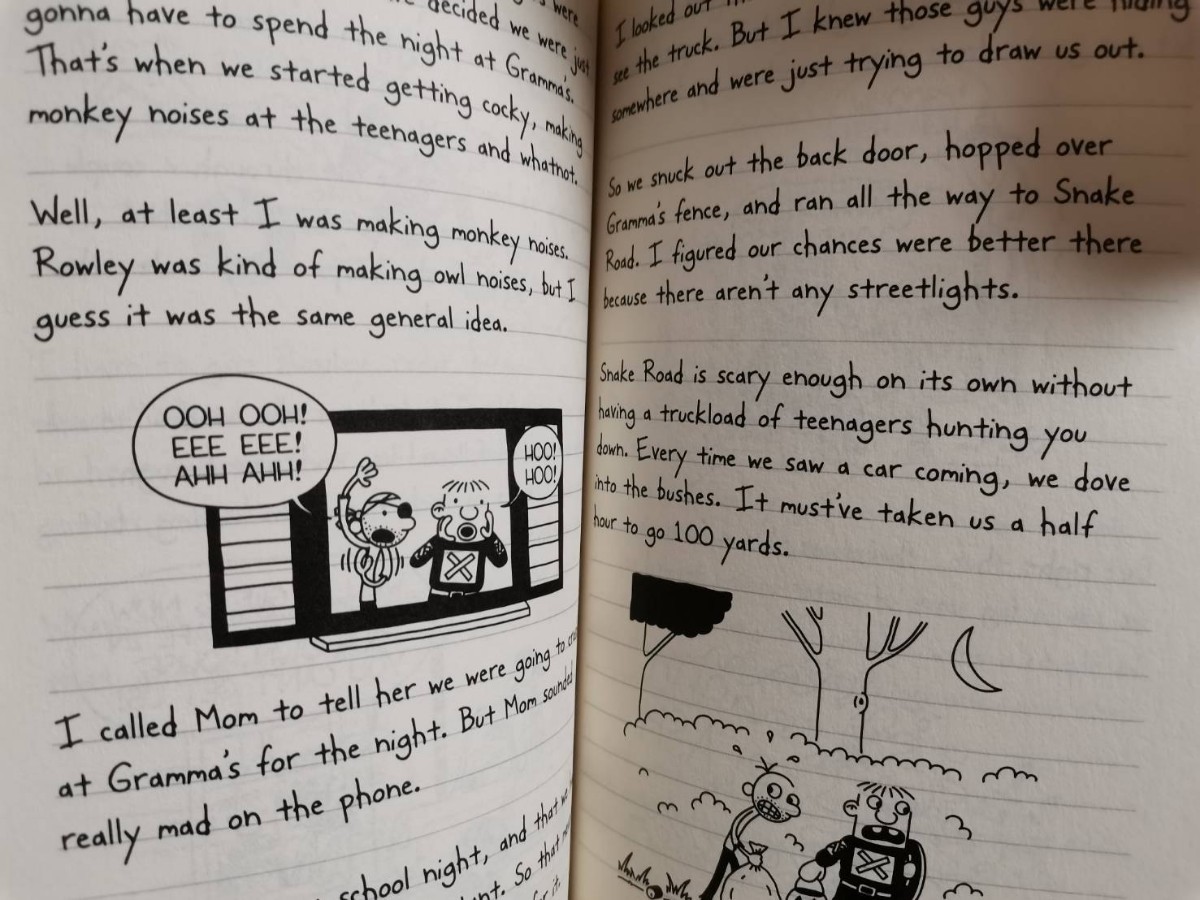 were
decided we were just
gonna have to spend the night at Gramma's.
That's when we started getting cocky, making
monkey noises at the teenagers and whatnot.
Well, at least I was making monkey noises.
Rowley was kind of making owl noises, but I
guess it was the same general idea.
OOH OOH!
EEE EEE!
AHH AHH!
HOO!
HOO!
I called Mom to tell her we were going to
at Gramma's for the night. But Mom sounded
really mad on the phone.
school night, and that we
So that
for it.
I looked out
see the truck. But I knew those guys were hiding
somewhere and were just trying to draw us out.
So we snuck out the back door, hopped over
Gramma's fence, and ran all the way to Snake
Road. I figured our chances were better there
because there aren't any streetlights.
Snake Road is scary enough on its own without
having a truckload of teenagers hunting you
down. Every time we saw a car coming, we dove
into the bushes. It must've taken us a half
hour to go 100 yards.